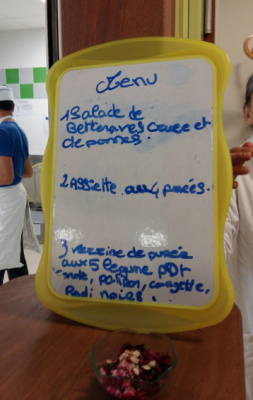 Menu
1 Salade de
Betteraves Crues et
de pommes.
2 Assiette aux 4 purées.
3 verrine de purée
aux 5 légume pdt
courgette,
Radi noires.